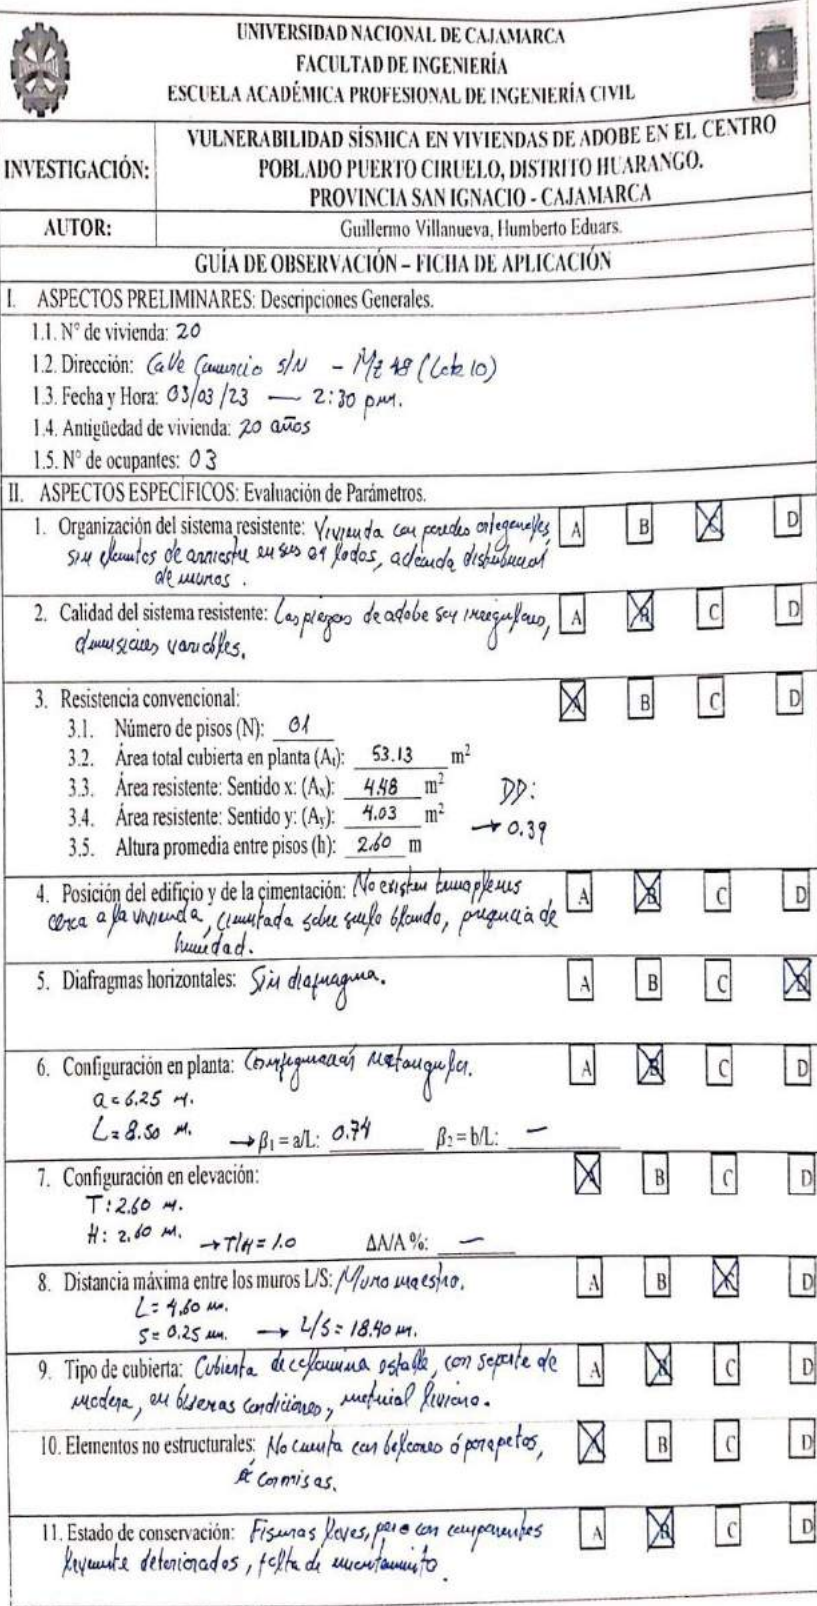 UNIVERSIDAD NACIONAL DE CAJAMARCA
FACULTAD DE INGENIERÍA
ESCUELA ACADÉMICA PROFESIONAL DE INGENIERÍA CIVIL
INVESTIGACIÓN:
VULNERABILIDAD SÍSMICA EN VIVIENDAS DE ADOBE EN EL CENTRO
POBLADO PUERTO CIRUELO, DISTRITO HUARANGO.
PROVINCIA SAN IGNACIO - CAJAMARCA
AUTOR: Guillermo Villanueva, Humberto Eduars.
GUÍA DE OBSERVACIÓN – FICHA DE APLICACIÓN
I. ASPECTOS PRELIMINARES: Descripciones Generales.
1.1. N° de vivienda: 20
1.2. Dirección: Calle Comercio S/N - Mz 48 (Lote 10)
1.3. Fecha y Hora: 03/03/23 — 2:30 pm.
1.4. Antigüedad de vivienda: 20 años
1.5. N° de ocupantes: 03
II. ASPECTOS ESPECÍFICOS: Evaluación de Parámetros.
1. Organización del sistema resistente: Vivienda con paredes ortogonales, A B C D
sin elementos de arriostre en sus 04 lados, adecuada distribución
de muros.
2. Calidad del sistema resistente: Las piezas de adobe son irregulares, A B C D
dimensiones variables.
3. Resistencia convencional: A B C D
3.1. Número de pisos (N): 01
3.2. Área total cubierta en planta (At): 53.13 m²
3.3. Área resistente: Sentido x: (Ax): 4.48 m² DD:
3.4. Área resistente: Sentido y: (Ay): 4.03 m² → 0.39
3.5. Altura promedia entre pisos (h): 2.60 m
4. Posición del edificio y de la cimentación: No existen terraplenes A B C D
cerca a la vivienda, cimentada sobre suelo blando, presencia de
humedad.
5. Diafragmas horizontales: Sin diafragma. A B C D
6. Configuración en planta: Configuración rectangular. A B C D
a = 6.25 m.
L = 8.50 m. → β1 = a/L: 0.74 β2 = b/L: —
7. Configuración en elevación: A B C D
T: 2.60 m.
H: 2.60 m. → T/H = 1.0 ΔA/A %: —
8. Distancia máxima entre los muros L/S: Muro maestro. A B C D
L = 4.60 m.
S = 0.25 m. → L/S = 18.40 m.
9. Tipo de cubierta: Cubierta de calamina estable, con soporte de A B C D
madera, en buenas condiciones, material liviano.
10. Elementos no estructurales: No cuenta con balcones ó parapetos, A B C D
cornisas.
11. Estado de conservación: Fisuras leves, pero con componentes A B C D
levemente deteriorados, falta de